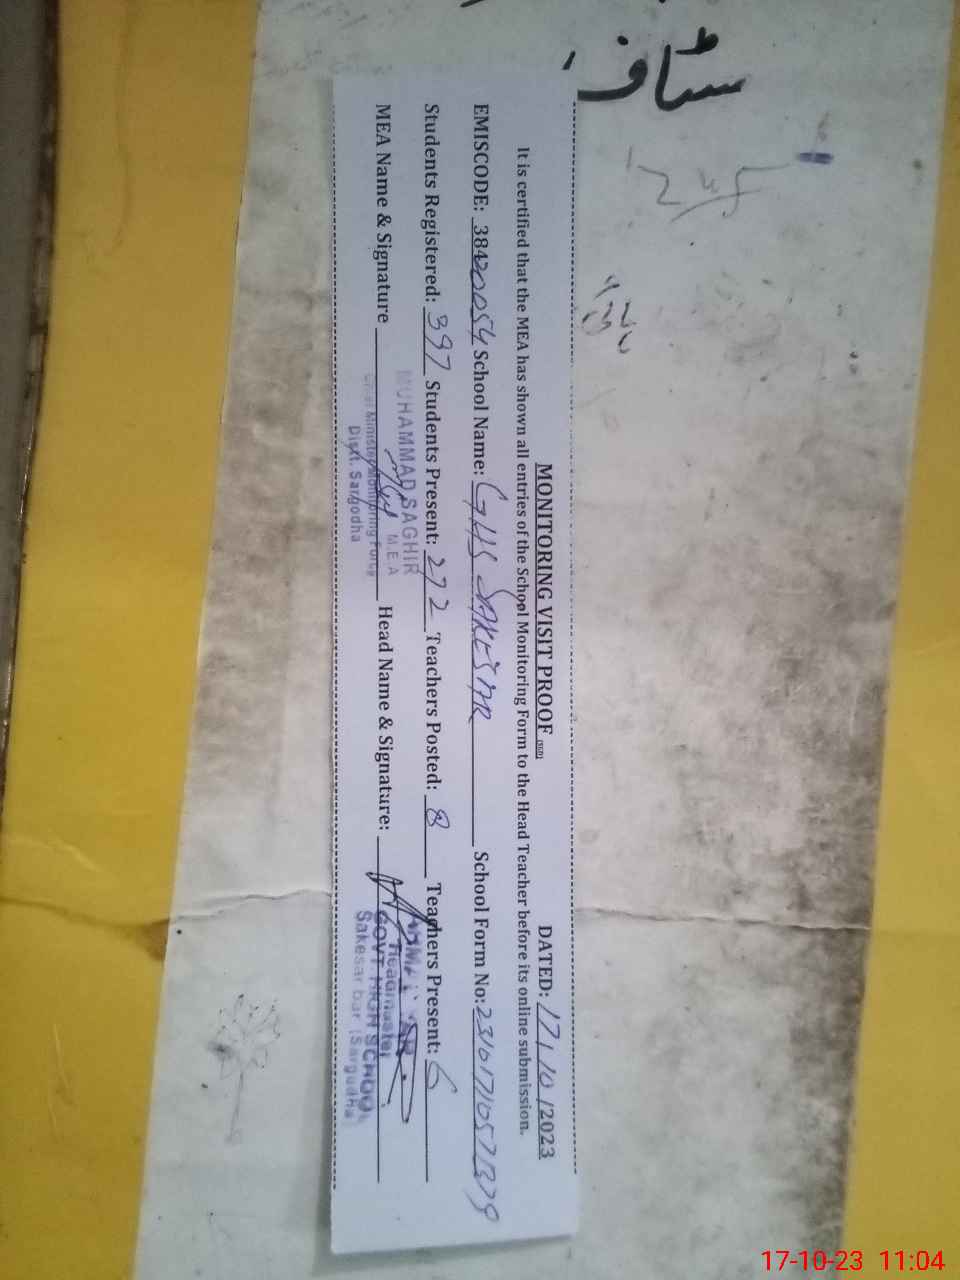 سٹاف
MONITORING VISIT PROOF
DATED: 17/10/2023
It is certified that the MEA has shown all entries of the School Monitoring Form to the Head Teacher before its online submission.
EMISCODE: 38420054 School Name: GHS SAKESAR School Form No:
Students Registered: 397 Students Present: 272 Teachers Posted: 8 Teachers Present: 6
MEA Name & Signature Head Name & Signature:
MUHAMMAD SAGHIR
M.E.A
Chief Minister Monitoring Force
Distt. Sargodha
Headmaster
GOVT. HIGH SCHOOL
Sakesar bar (Sargodha)
17-10-23 11:04